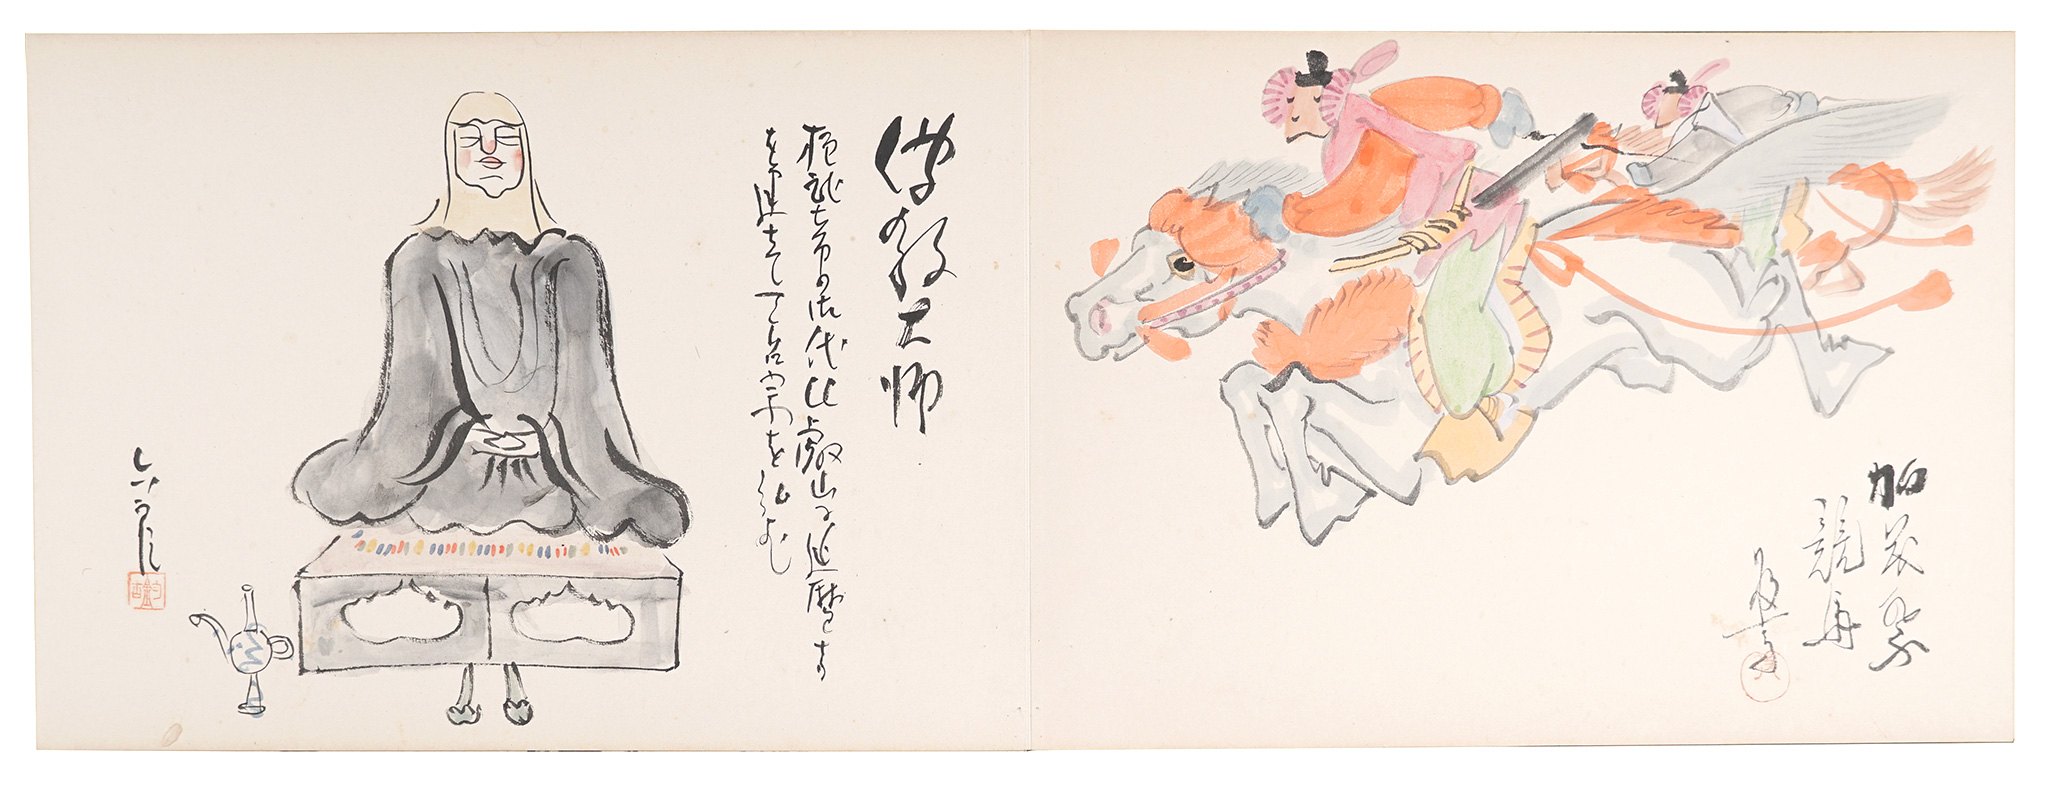 加茂祭
競馬
傳教大師
桓武天帝の御代比叡山に延暦寺
を建立して天台宗を弘む